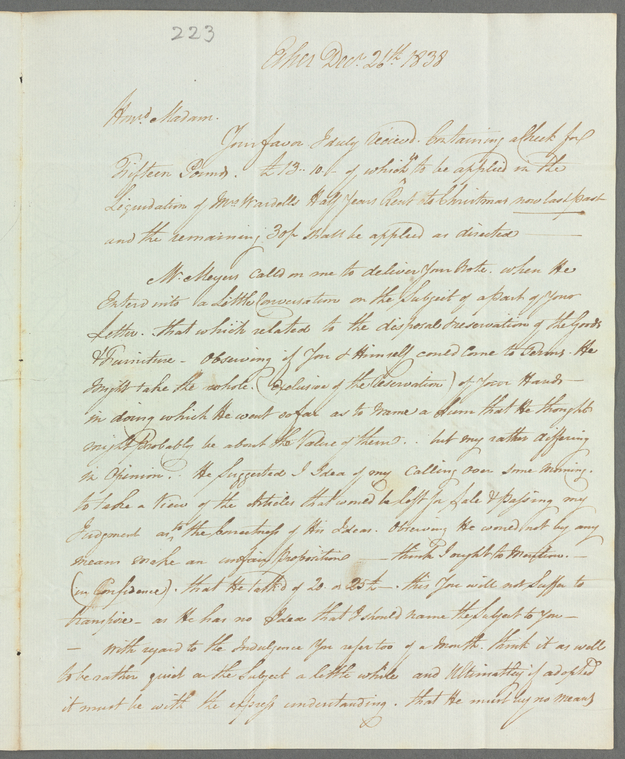 223
Esher Decr. 26th 1838
Hond. Madam.
Your favor I duly received. Containing a Check for
Fifteen Pounds. £13-10- of which to be applied in the
Liquidation of Mrs Wardells Half Years Rent to Christmas now last past
and the remaining 30/ shall be applied as directed
Mr. Meyers called on me to deliver Your Note. when He
Enterd into a little Conversation on the Subject of a part of Your
Letter. that which related to the disposal reservation of the Goods
& Furniture - Observing if You & Himself could come to Terms. He
might take the whole. (Exclusive of the Reservation) of Your Hands -
in doing which He went so far as to name a Sum that He thought
might Probably be about the Value of them.. but my rather differing
in Opinion.. He Suggested Idea of my calling over Some morning.
to take a View of the Articles that would be left for Sale & Passing my
Judgment as to the correctness of His Ideas. Observing He would not by any
means make an unfair Proposition - think I ought to Mention. -
(in Confidence). that He talk'd of 20 or 25£ -. this You will not Suffer to
transpire - as He has no Idea that I should name the Subject to You -
- With regard to the Indulgence You refer too of a Month. think it as well
to be rather quiet on the Subject a little while and Ultimately if adopted
it must be with the express understanding. that He must by no means